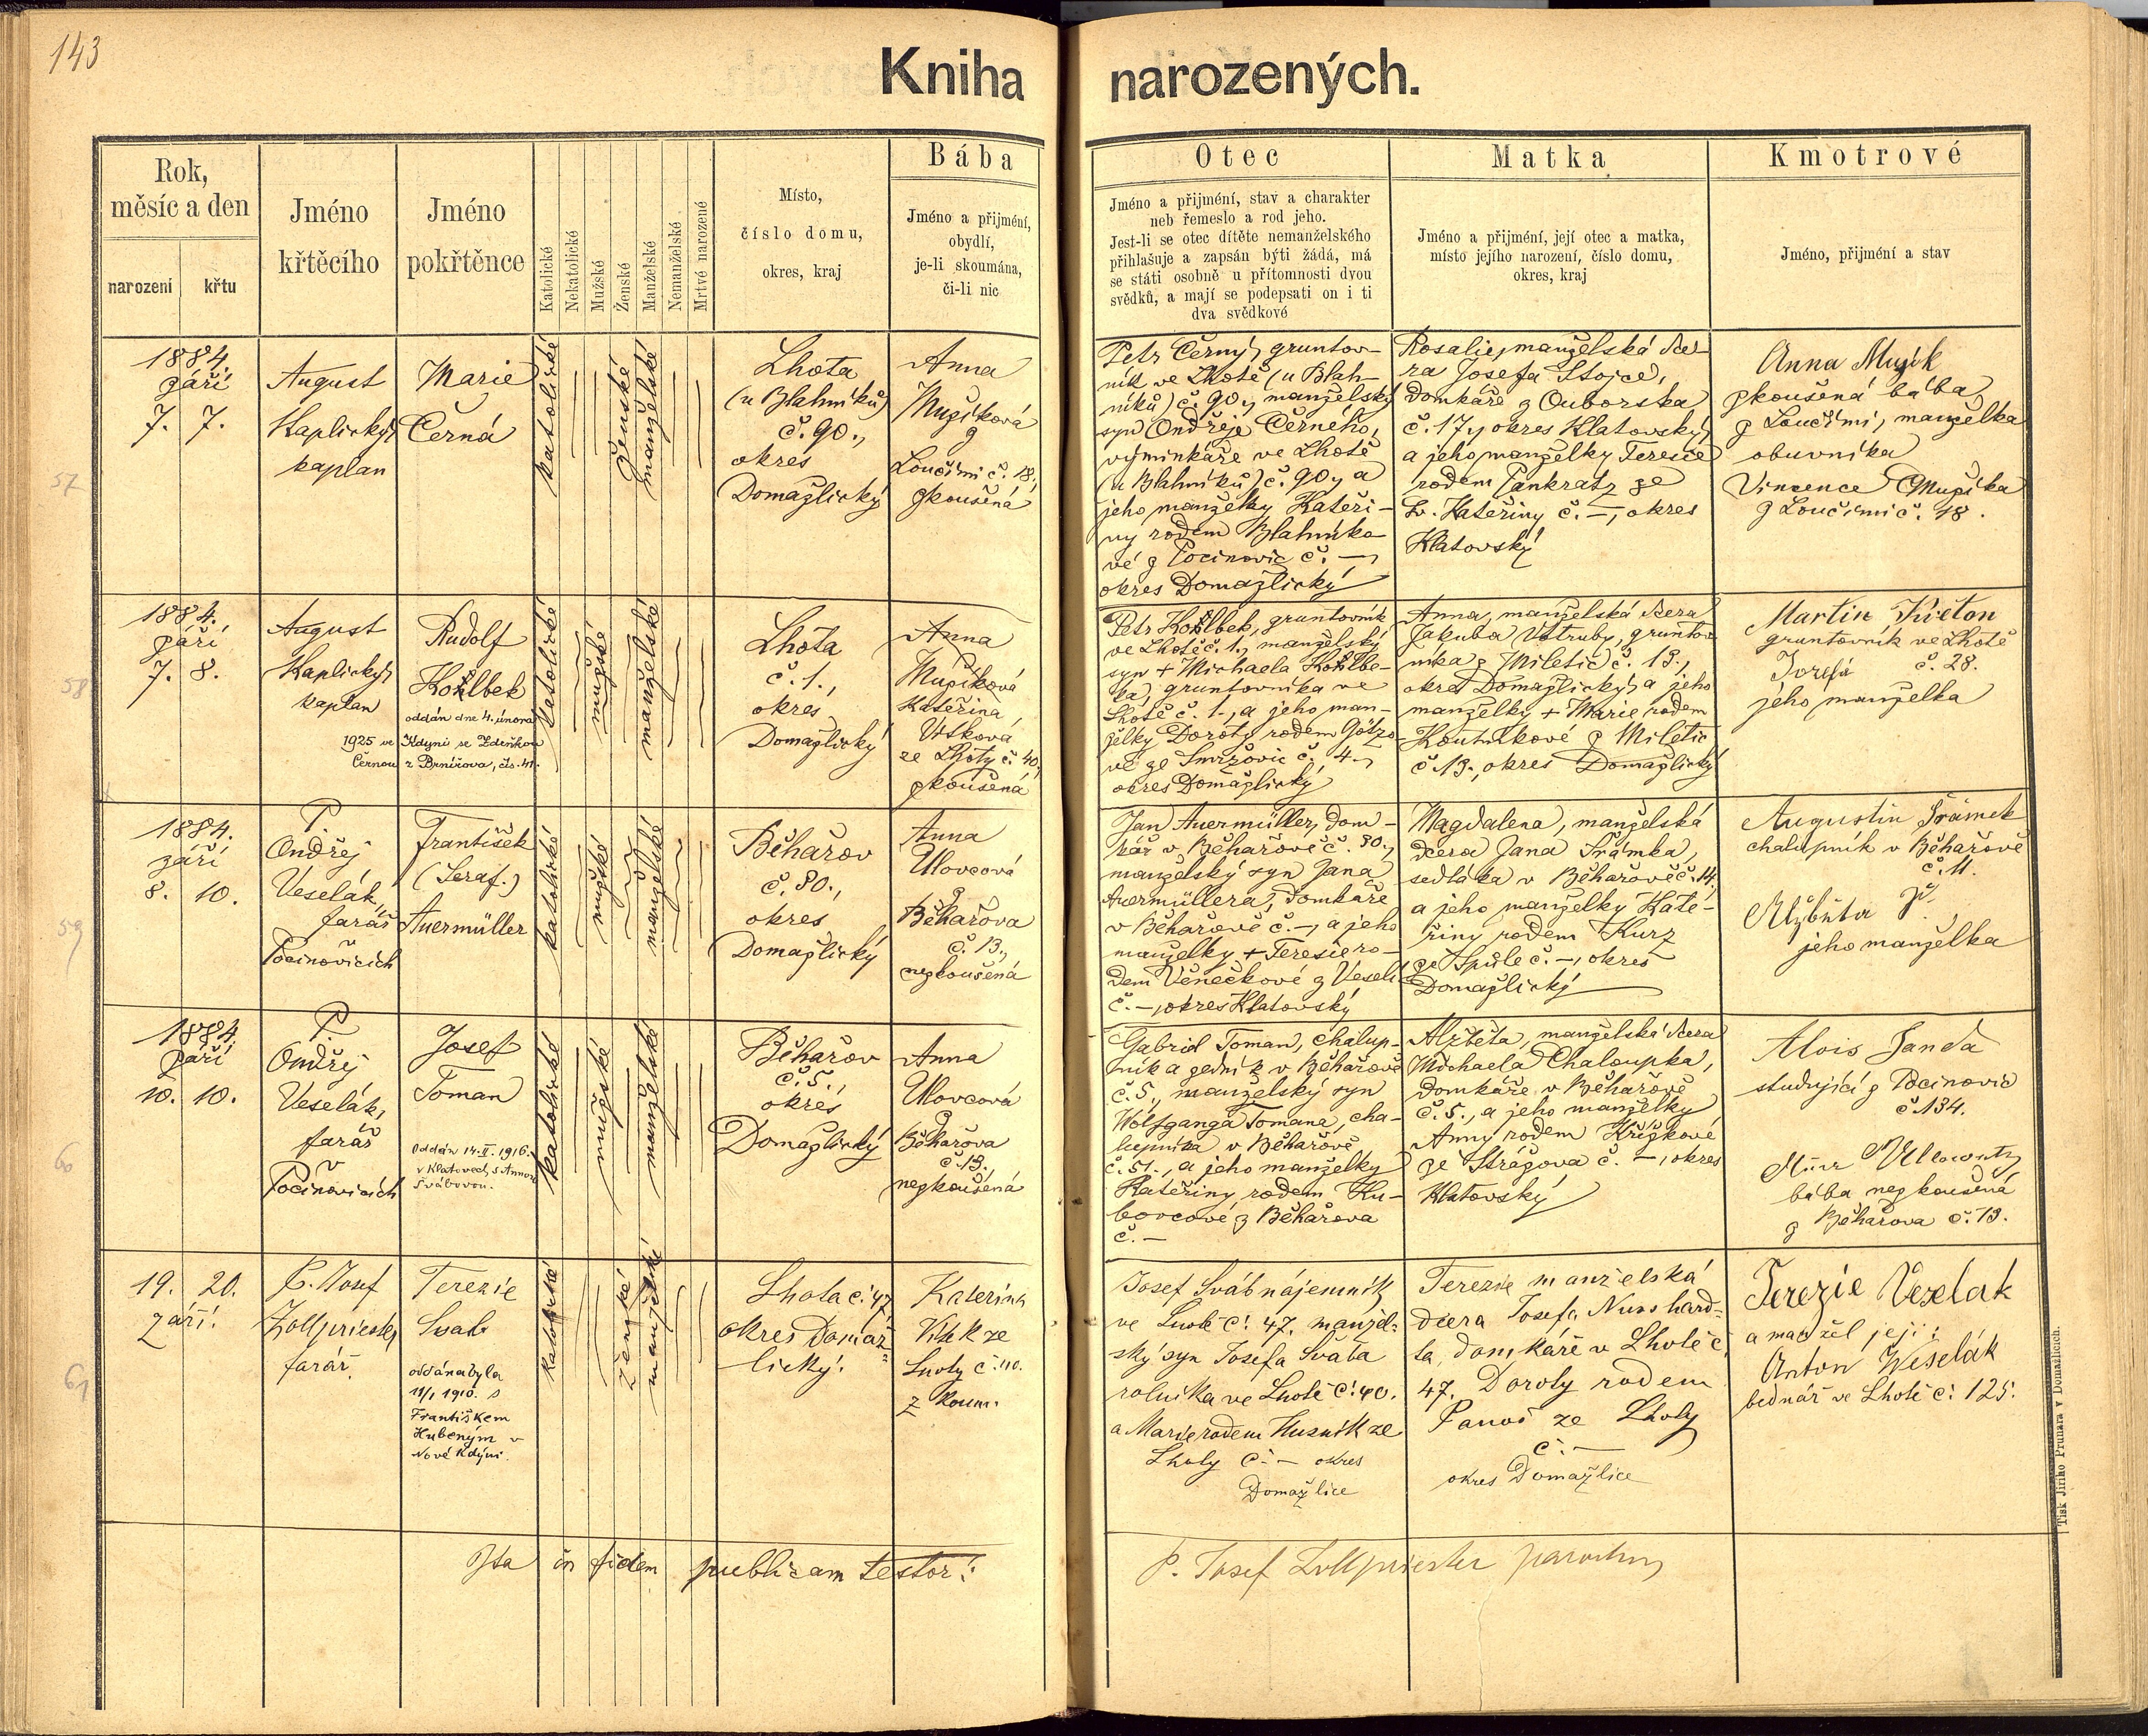 143
Kniha narozených.
Rok,
měsíc a den
narození
křtu
Jméno
křtěcího
Jméno
pokřtěnce
Katolické
Nekatolické
Mužské
Ženské
Manželské
Nemanželské
Mrtvě narozené
Místo,
číslo domu,
okres, kraj
Bába
Jméno a přijmení,
obydlí,
je-li skoumána,
či-li nic
Otec
Jméno a přijmení, stav a charakter
neb řemeslo a rod jeho.
Jest-li se otec dítěte nemanželského
přihlašuje a zapsán býti žádá, má
se státi osobně u přítomnosti dvou
svědků, a mají se podepsati on i ti
dva svědkové
Matka
Jméno a přijmení, její otec a matka,
místo jejího narození, číslo domu,
okres, kraj
Kmotrové
Jméno, přijmení a stav
57
1884.
září
7. 7.
August
Kaplický,
kaplan
Marie
Černá
katolické
ženské
manželské
Lhota
(u Blahníků)
č. 90.,
okres
Domažlický
Anna
Mužíková
z
Loučimi č. 18.,
zkoušená
Petr Černý, gruntov-
ník ve Lhotě (u Blah-
níků) č. 90., manželský
syn Ondřeje Černého,
výminkáře ve Lhotě
(u Blahníků) č. 90., a
jeho manželky Kateři-
ny rodem Blahníko-
vé z Pocinovic č. —,
okres Domažlický
Rosalie, manželská dce-
ra Josefa Stojce,
domkáře z Ouborska
č. 17., okres Klatovský,
a jeho manželky Teresie
rodem Pankratz ze
Sv. Kateřiny č. —, okres
Klatovský
Anna Mužík
zkoušená bába
z Loučimi, manželka
obuvníka
Vincence Mužíka
z Loučimi č. 18.
58
1884.
září
7. 8.
August
Kaplický,
kaplan
Rudolf
Kohlbek
oddán dne 4. února
1925 ve Kdyni se Zdeňkou
Černou z Brnířova, čís. 41.
katolické
mužské
manželské
Lhota
č. 1.,
okres
Domažlický
Anna
Mužíková
Kateřina
Vítková
ze Lhoty č. 40.,
zkoušená
Petr Kohlbek, gruntovník
ve Lhotě č. 1., manželský
syn + Michaela Kohlbe-
ka, gruntovníka ve
Lhotě č. 1., a jeho man-
želky Doroty rodem Götzo-
vé ze Smržovic č. 4.,
okres Domažlický
Anna, manželská dcera
Jakuba Vístruby, gruntov-
níka z Miletic č. 13.,
okres Domažlický, a jeho
manželky + Marie rodem
Koutníkové z Miletic
č. 13., okres Domažlický
Martin Květon
gruntovník ve Lhotě
č. 28.
Josefa
jeho manželka
59
1884.
září
8. 10.
P.
Ondřej
Veselák,
farář
v
Pocinovicích
František
(Seraf.)
Auermüller
katolické
mužské
manželské
Běhařov
č. 80.,
okres
Domažlický
Anna
Ulovcová
z
Běhařova
č. 13.,
nezkoušená
Jan Auermüller, dom-
kář v Běhařově č. 80.,
manželský syn Jana
Auermüllera, domkáře
v Běhařově č. —, a jeho
manželky + Teresie ro-
dem Věnečkové z Veselí
č. —, okres Klatovský
Magdalena, manželská
dcera Jana Šrámka,
sedláka v Běhařově č. 14.
a jeho manželky Kate-
řiny rodem Kurz
ze Spůle č. —, okres
Domažlický
Augustin Šrámek
chalupník v Běhařově
č. 11.
Alžběta
jeho manželka
60
1884.
září
10. 10.
P.
Ondřej
Veselák,
farář
v
Pocinovicích
Josef
Toman
Oddán 14. II. 1916.
v Klatovech s Annou
Švábovou.
katolické
mužské
manželské
Běhařov
č. 5.,
okres
Domažlický
Anna
Ulovcová
z
Běhařova
č. 13.,
nezkoušená
Gabriel Toman, chalup-
ník a zedník v Běhařově
č. 5., manželský syn
Wolfganga Tomana, cha-
lupníka v Běhařově
č. 51., a jeho manželky
Kateřiny, rodem Ku-
bovcové z Běhařova
č. —
Alžběta, manželská dcera
Michaela Chaloupka,
domkáře v Běhařově
č. 5., a jeho manželky
Anny rodem Křížkové
ze Strážova č. —, okres
Klatovský
Alois Janda
studující z Pocinovic
č. 134.
bába nezkoušená
z Běhařova č. 13.
61
19. 20.
září.
P. Josef
Zollpriester
farář.
Terezie
Svab
oddána byla
11/1 1910. s
Františkem
Hubeným v
Nové Kdyni.
katolické
ženské
manželské
Lhota č. 47
okres Domaž-
lický.
Katerina
Vítek ze
Lhoty č. 40.
zkoum.
Josef Sváb nájemník
ve Lhotě č. 47. manžel-
ský syn Josefa Svába
rolníka ve Lhotě č. 40.
a Marie rodem Husník ze
Lhoty č. — okres
Domažlice
Terezie manželská
dcera Josefa Nusshard-
ta, domkáře v Lhotě č.
47. Doroty rodem
Panoš ze Lhoty
č. —
okres Domažlice
Terezie Veselak
a manžel její:
Anton Weselák
bednář ve Lhotě č. 125.
Ita in fidem publicam testor:
P. Josef Zollpriester parochus
Tisk Jiřího Prunara v Domažlicích.